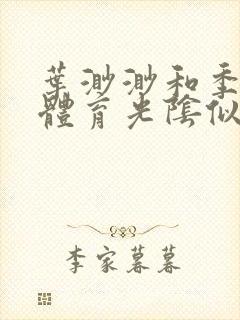 葉渺渺和季
體育光陰似
李家暮暮